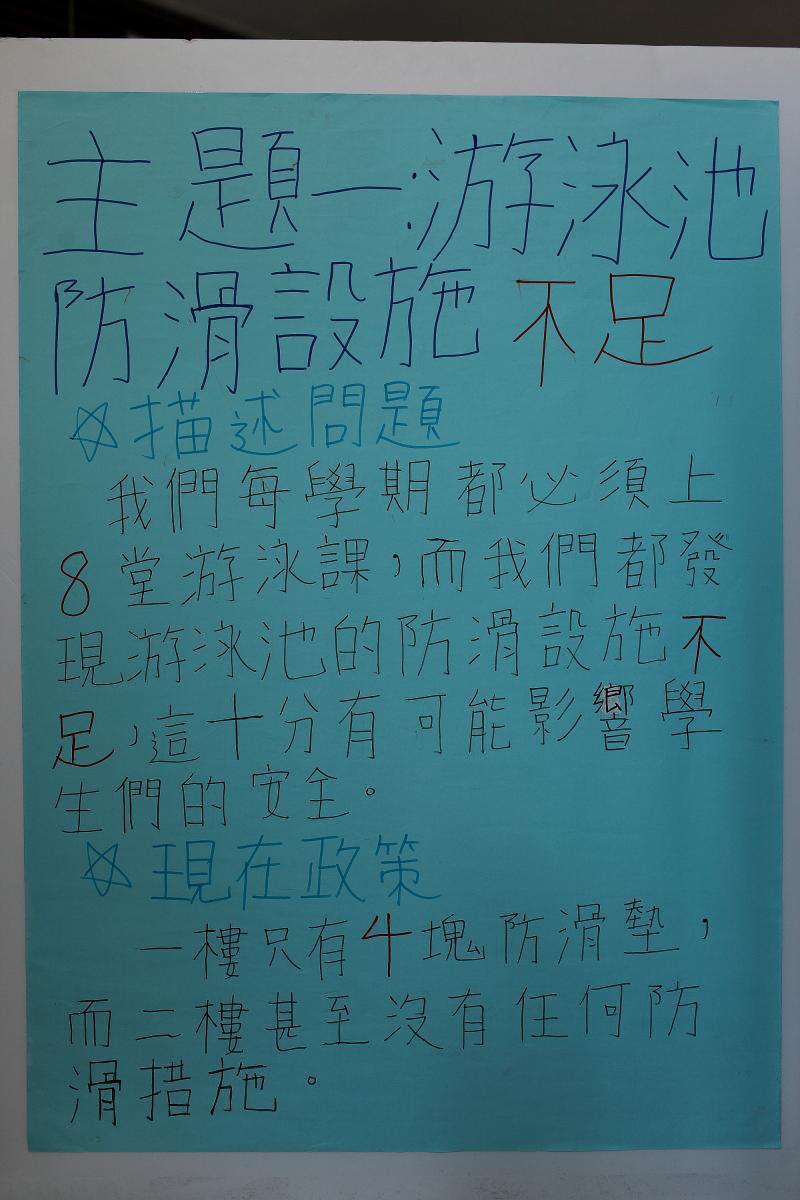 主題一:游泳池
防滑設施不足
☆描述問題
我們每學期都必須上
8堂游泳課，而我們都發
現游泳池的防滑設施不
足，這十分有可能影響學
生們的安全。
☆現在政策
一樓只有4塊防滑墊，
而二樓甚至沒有任何防
滑措施。